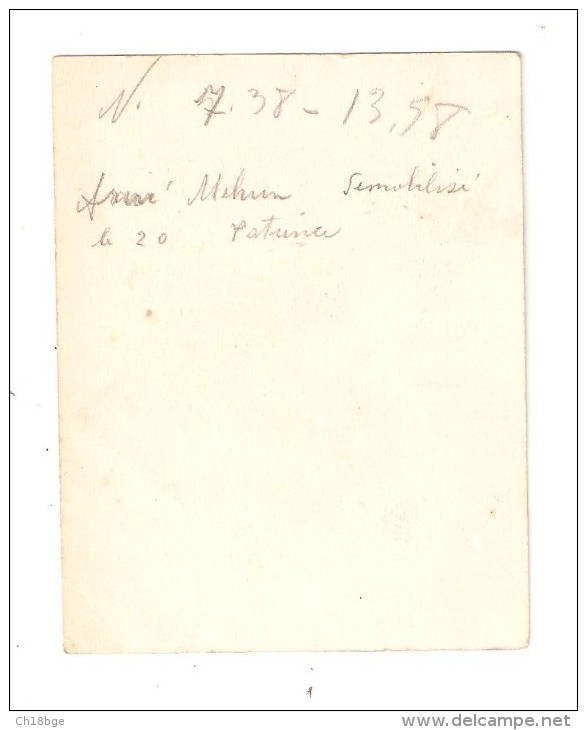 N. 7.38 - 13,58
Arrivé Mehun Demobilisé
le 20
1
Ch18bge
www.delcampe.net